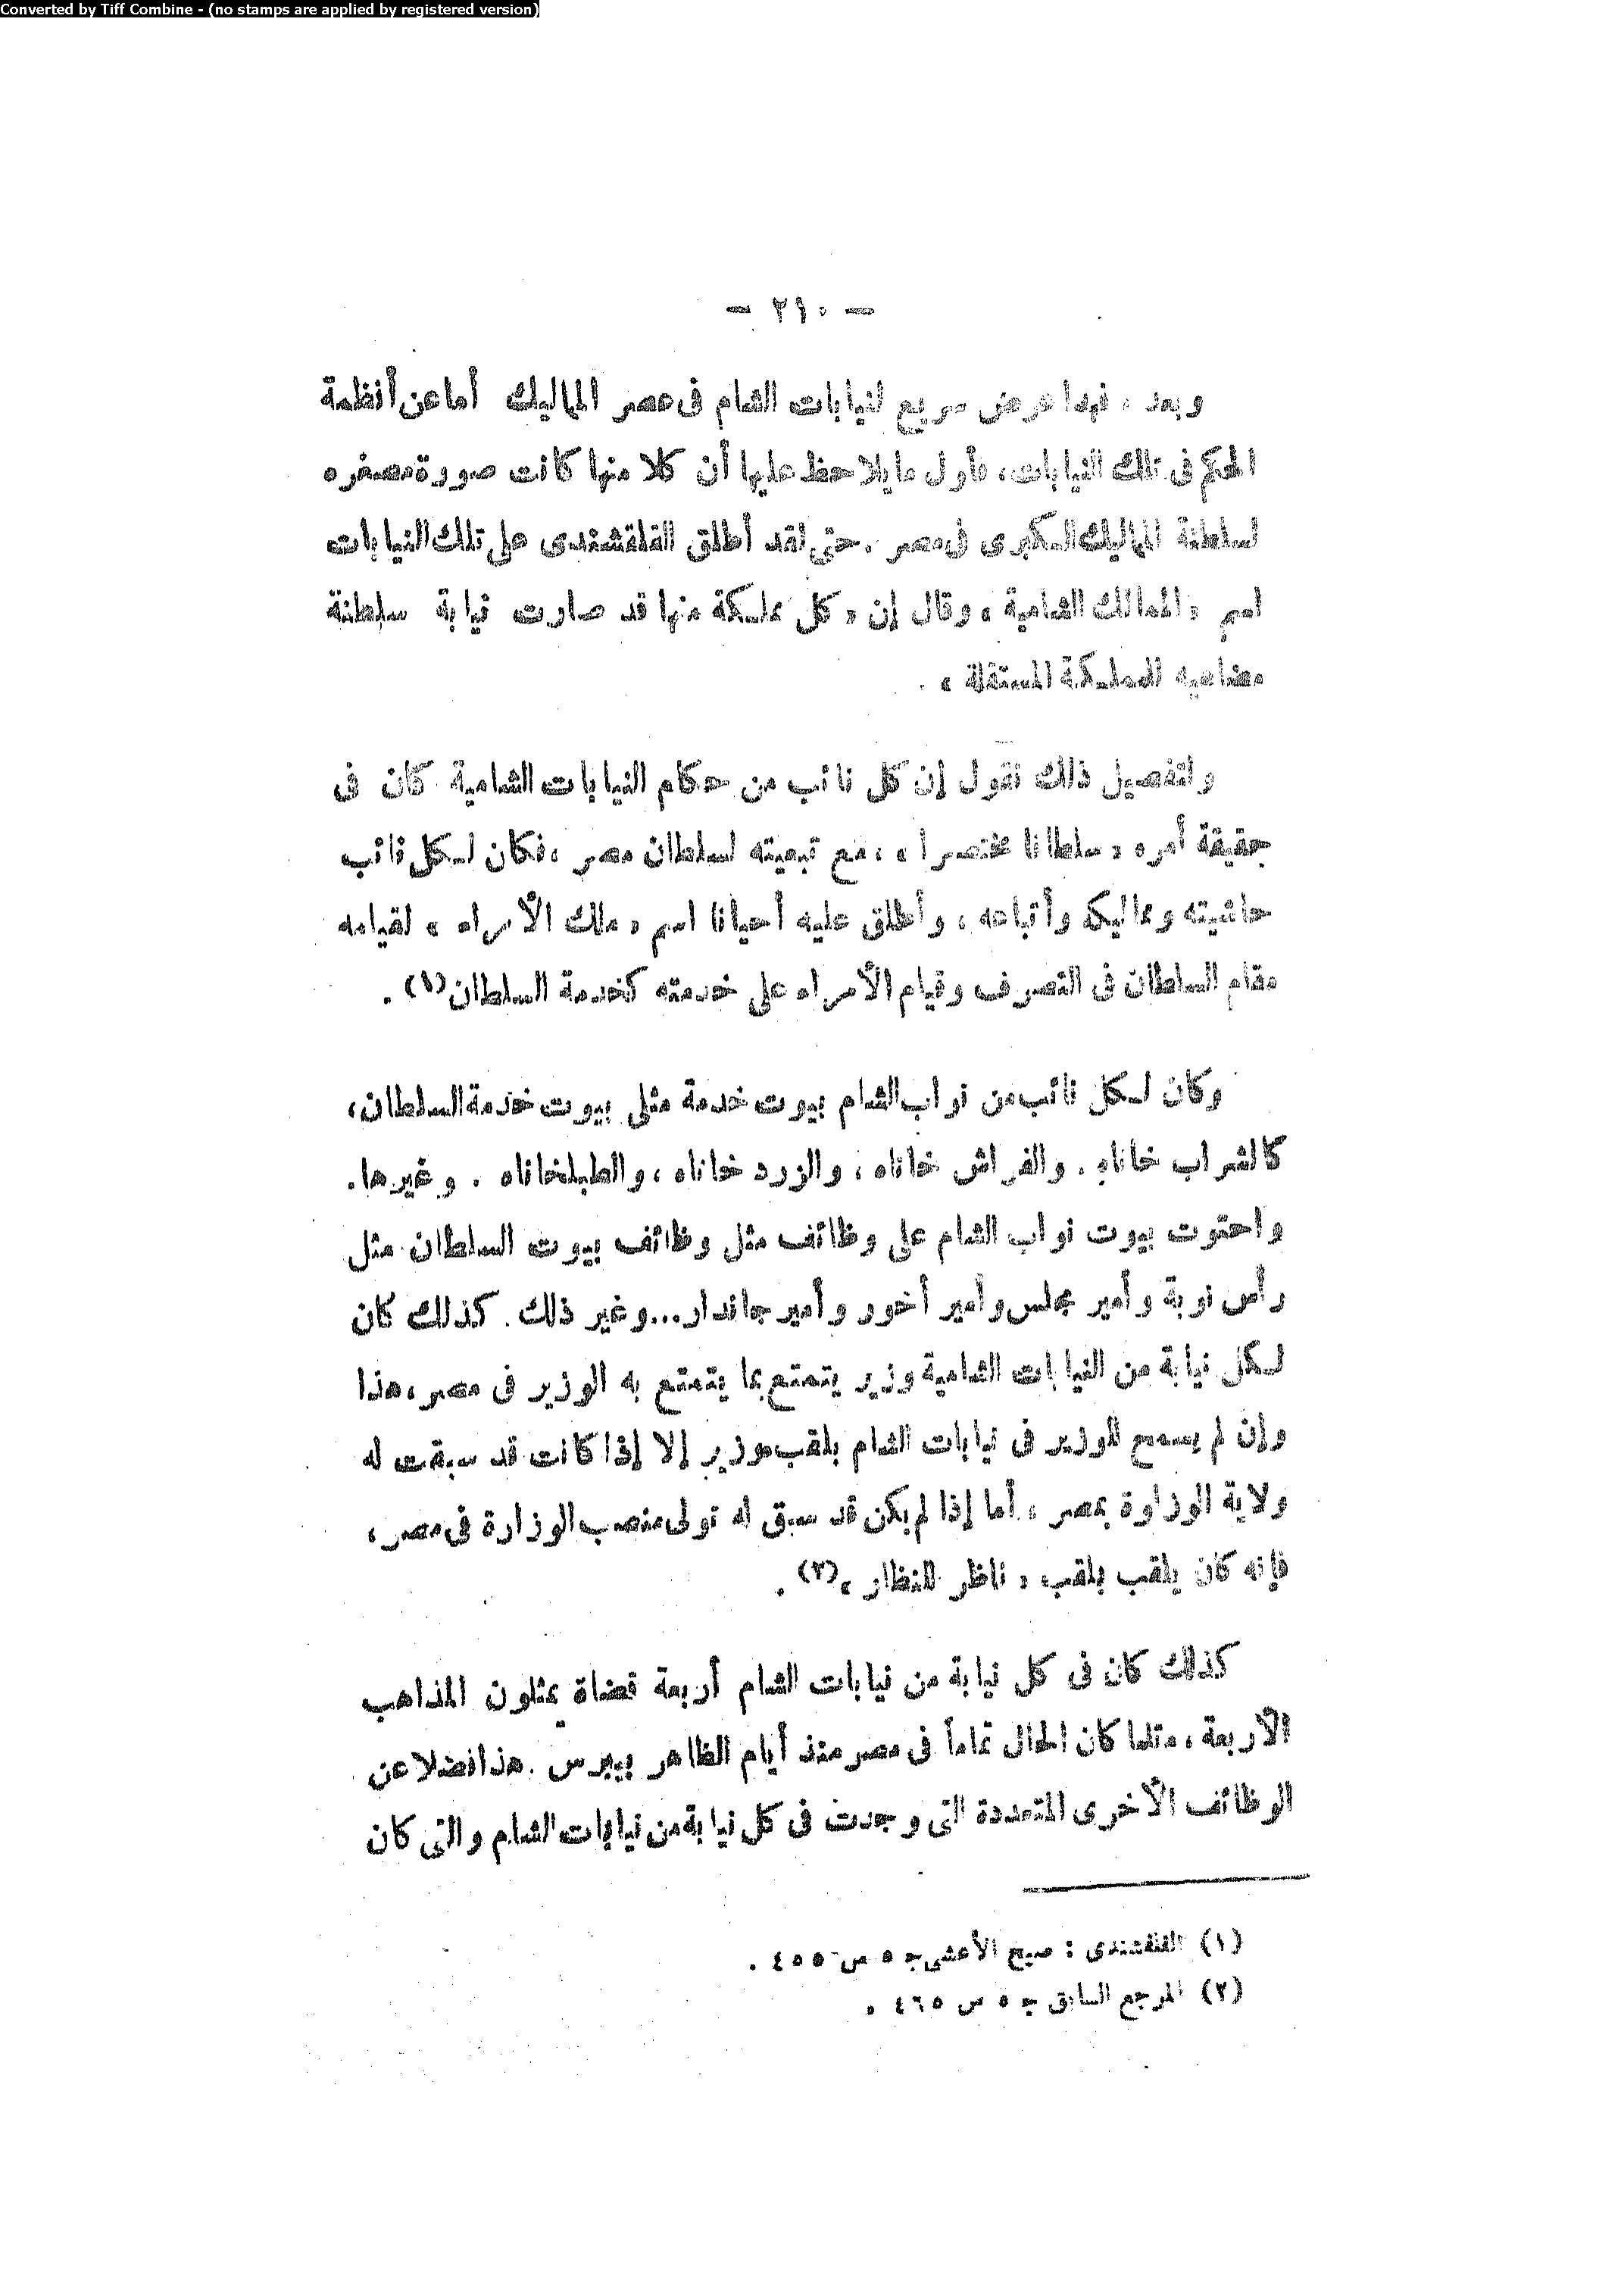 Converted by Tiff Combine - (no stamps are applied by registered version)
— ٢١٠ —
وبعد ، فهذا عرض سريع لنيابات الشام فى عصر المماليك أما عن أنظمة
الحكم فى تلك النيابات ، فأول ما يلاحظ عليها أن كلا منها كانت صورة مصغره
لسلطنة المماليك الكبرى فى مصر . حتى لقد أطلق القلقشندى على تلك النيابات
اسم « الممالك الشامية » وقال إن « كل مملكة منها قد صارت نيابة سلطنة
مضاهيه للمملكة المستقلة » .
ولتفصيل ذلك نقول إن كل نائب من حكام النيابات الشامية كان فى
حقيقة أمره « سلطانا مختصرا » ، مع تبعيته لسلطان مصر ، فكان لكل نائب
حاشيته ومماليكه وأتباعه ، وأطلق عليه أحيانا اسم « ملك الأمراء » لقيامه
مقام السلطان فى التصرف وقيام الأمراء على خدمته كخدمة السلطان (١) .
وكان لكل نائب من نواب الشام بيوت خدمة مثل بيوت خدمة السلطان ،
كالشراب خاناه . والفراش خاناه ، والزرد خاناه ، والطبلخاناه . وغيرها .
واحتوت بيوت نواب الشام على وظائف مثل وظائف بيوت السلطان مثل
رأس نوبة وأمير مجلس وأمير أخور وأمير جاندار ... وغير ذلك . كذلك كان
لكل نيابة من النيابات الشامية وزير يتمتع بما يتمتع به الوزير فى مصر ، هذا
وإن لم يسمح للوزير فى نيابات الشام بلقب وزير إلا إذا كانت قد سبقت له
ولاية الوزاوة بمصر ، أما إذا لم يكن قد سبق له تولى منصب الوزارة فى مصر ،
فإنه كان يلقب بلقب « ناظر للنظار » (٢) .
كذلك كان فى كل نيابة من نيابات الشام أربعة قضاة يمثلون المذاهب
الأربعة ، مثلما كان الحال تماماً فى مصر منذ أيام الظاهر بيبرس . هذا فضلا عن
الوظائف الأخرى المتعددة التى وجدت فى كل نيابة من نيابات الشام والتى كان
(١) القلقشندى : صبح الأعشى ج ٥ ص ٤٥٥ .
(٢) المرجع السابق ج ٥ ص ٤٦٥ .